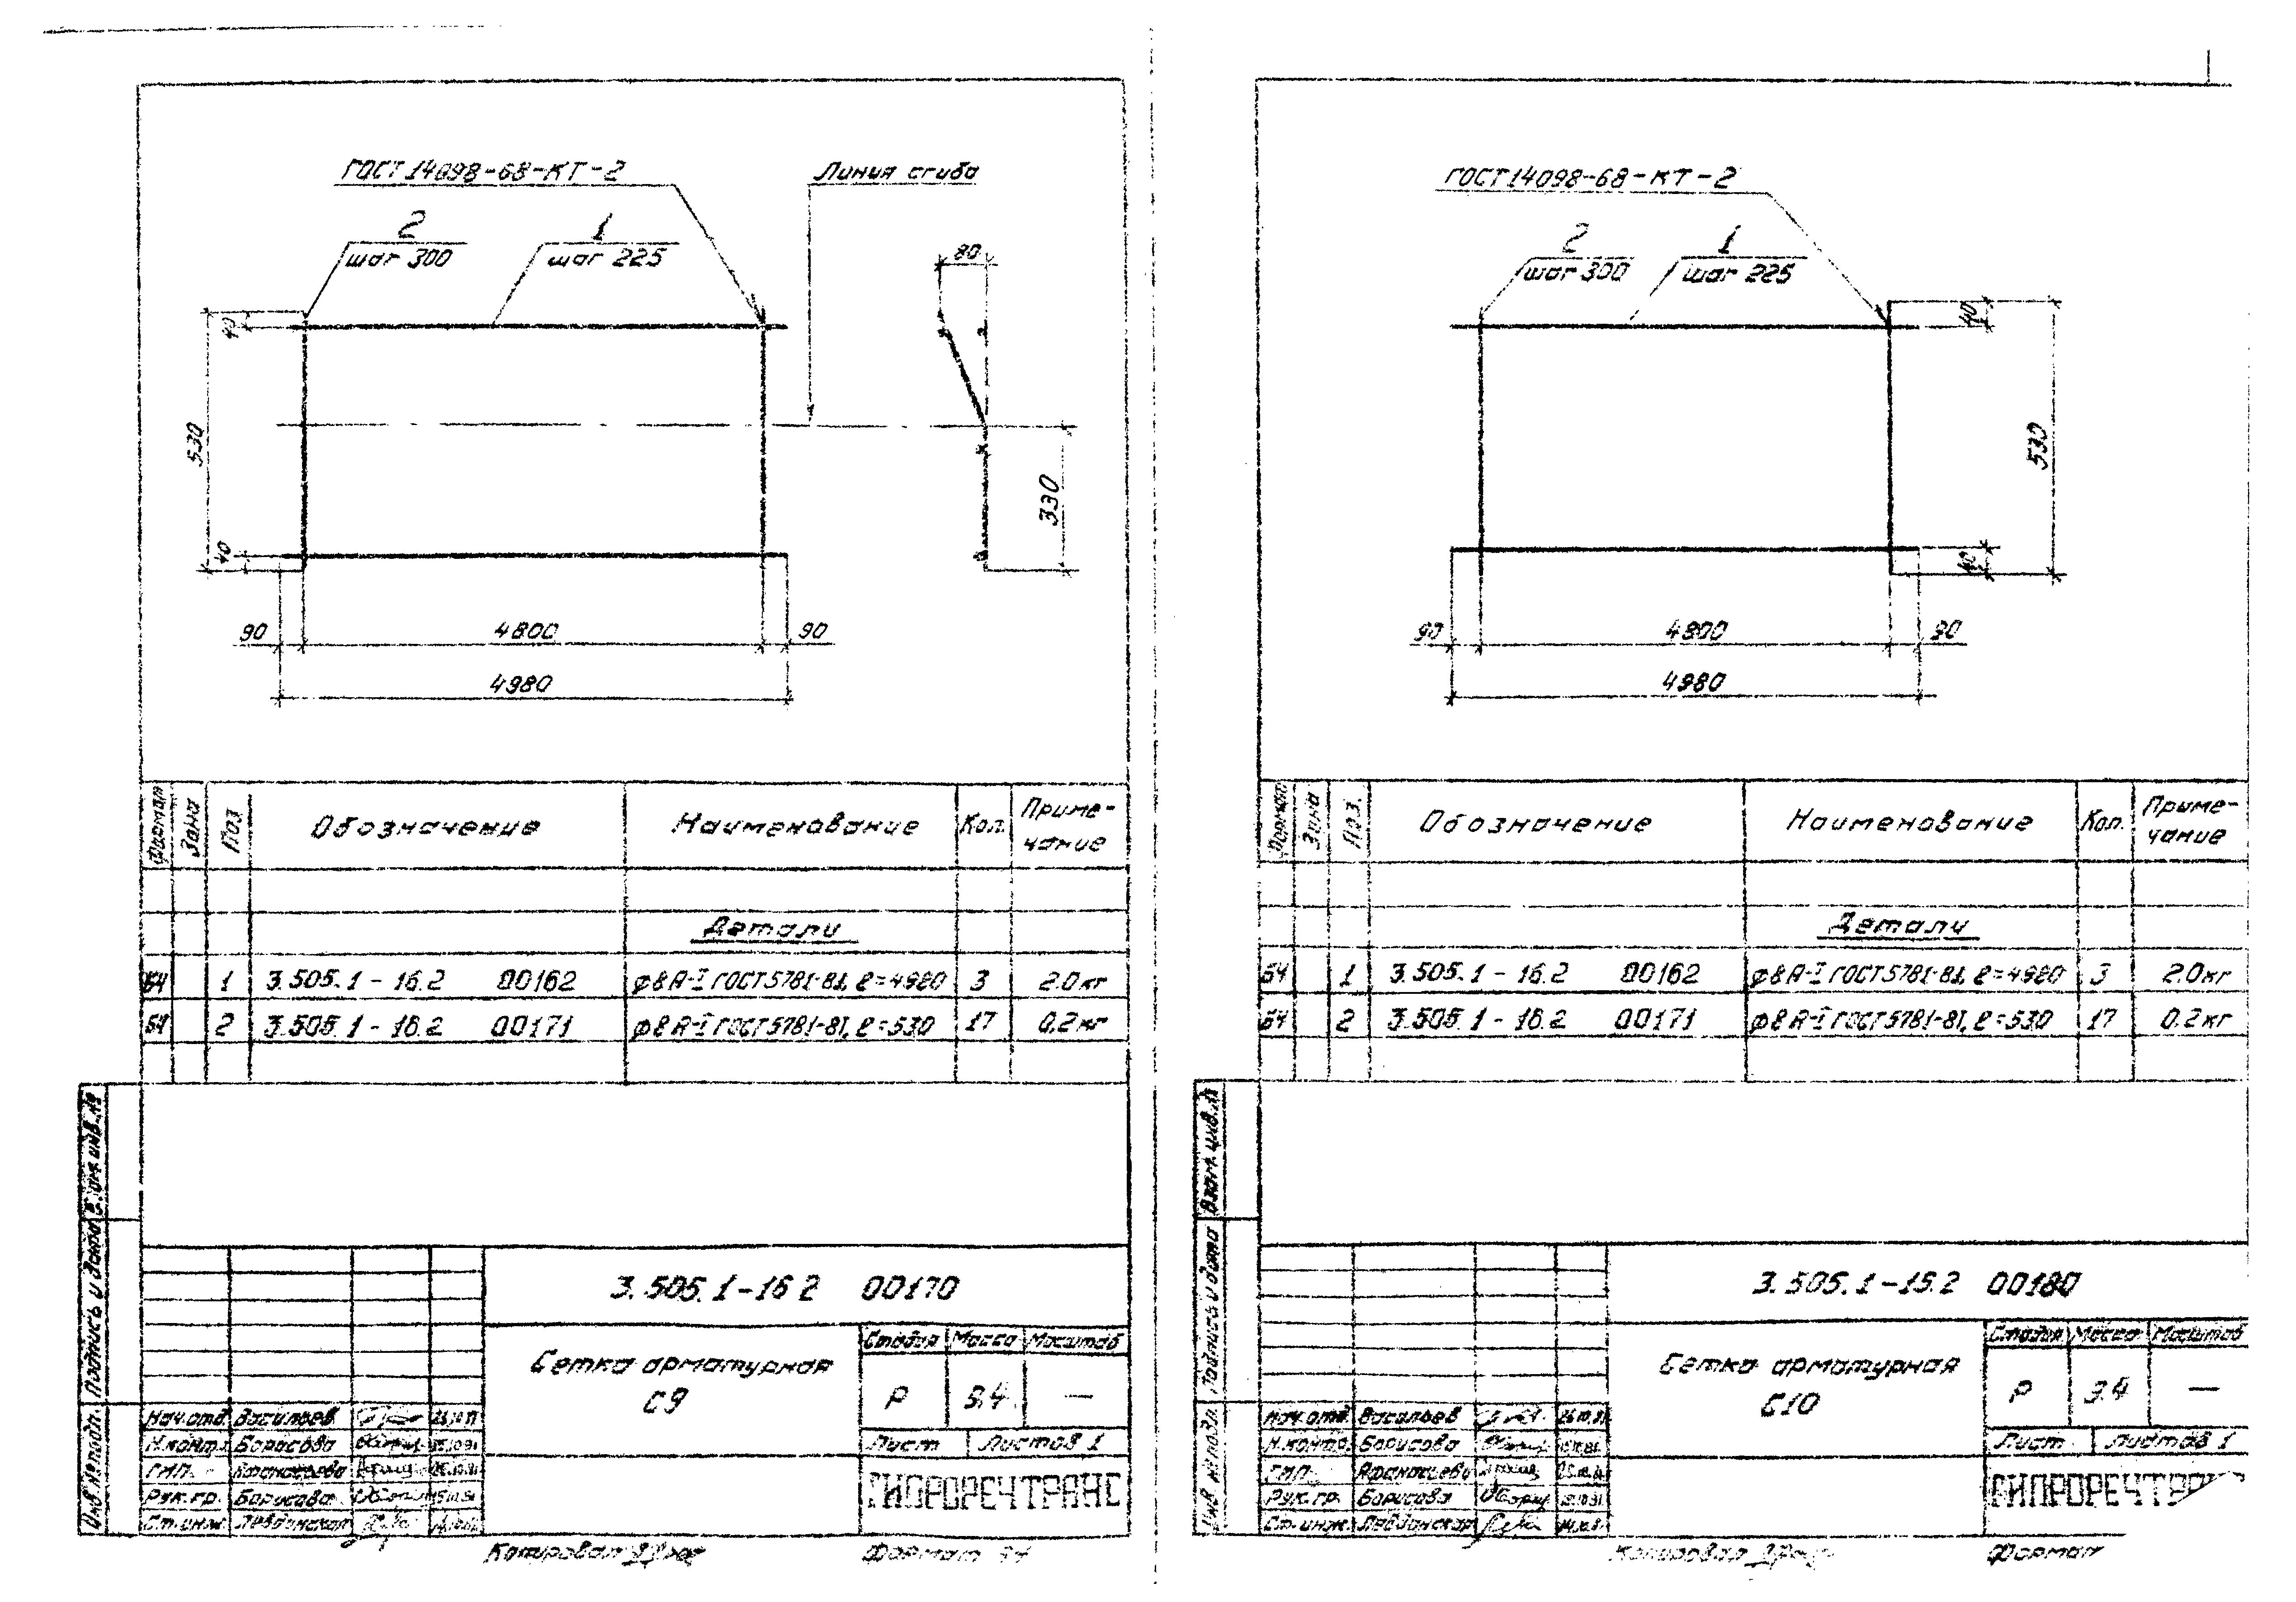 ГОСТ 14098-68-КТ-2
Линия сгиба
2
шаг 300
1
шаг 225
80
40
530
40
330
90
4800
90
4980
Формат
Зона
Поз
Обозначение
Наименование
Кол.
Приме-
чание
Детали
БЧ 1 3.505.1-16.2 00162 ф8А-I ГОСТ 5781-81, ℓ=4980 3 2.0кг
БЧ 2 3.505.1-16.2 00171 ф8А-I ГОСТ 5781-81, ℓ=530 17 0.2кг
Инв.№подл.
Подпись и дата
Взам.инв.№
3.505.1-16 2 00170
Сетка арматурная
С9
Стадия Масса Масштаб
Р 3.4 —
Лист Листов 1
ГИПРОРЕЧТРАНС
Нач.отд. Васильев
Н.контр. Борисова
ГИП Афанасьева
Рук.гр. Борисова
Ст.инж.
Копировал
Формат
ГОСТ 14098-68-КТ-2
2
шаг 300
1
шаг 225
40
530
40
90
4800
90
4980
Формат
Зона
Поз.
Обозначение
Наименование
Кол.
Приме-
чание
Детали
БЧ 1 3.505.1-16.2 00162 ф8А-I ГОСТ 5781-81, ℓ=4980 3 2.0кг
БЧ 2 3.505.1-16.2 00171 ф8А-I ГОСТ 5781-81, ℓ=530 17 0.2кг
Инв.№подл.
Подпись и дата
Взам.инв.№
3.505.1-15.2 00180
Сетка арматурная
С10
Стадия Масса Масштаб
Р 3.4 —
Лист Листов 1
ГИПРОРЕЧТРАНС
Нач.отд. Васильев
Н.контр. Борисова
ГИП Афанасьева
Рук.гр. Борисова
Ст.инж.
Копировал
Формат